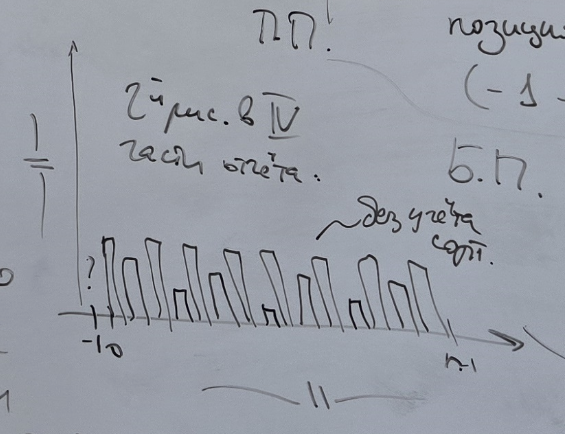 П.П!
позици
(-1 -
Б.П.
2й рис. в IV
части отчёта.
без учёта
сорт.
?
-1 0
n-1
—11—